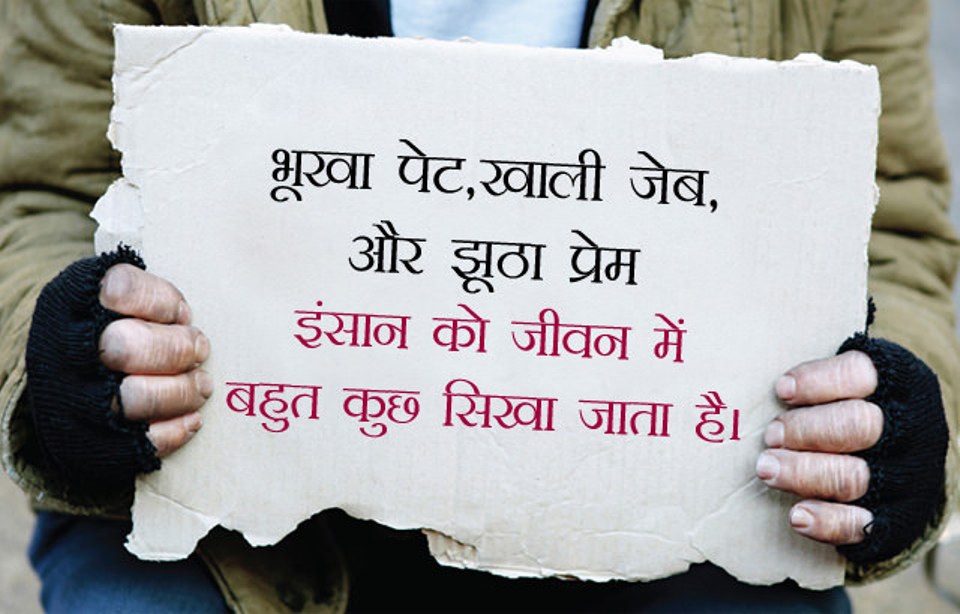 भूखा पेट,खाली जेब,
और झूठा प्रेम
इंसान को जीवन में
बहुत कुछ सिखा जाता है।